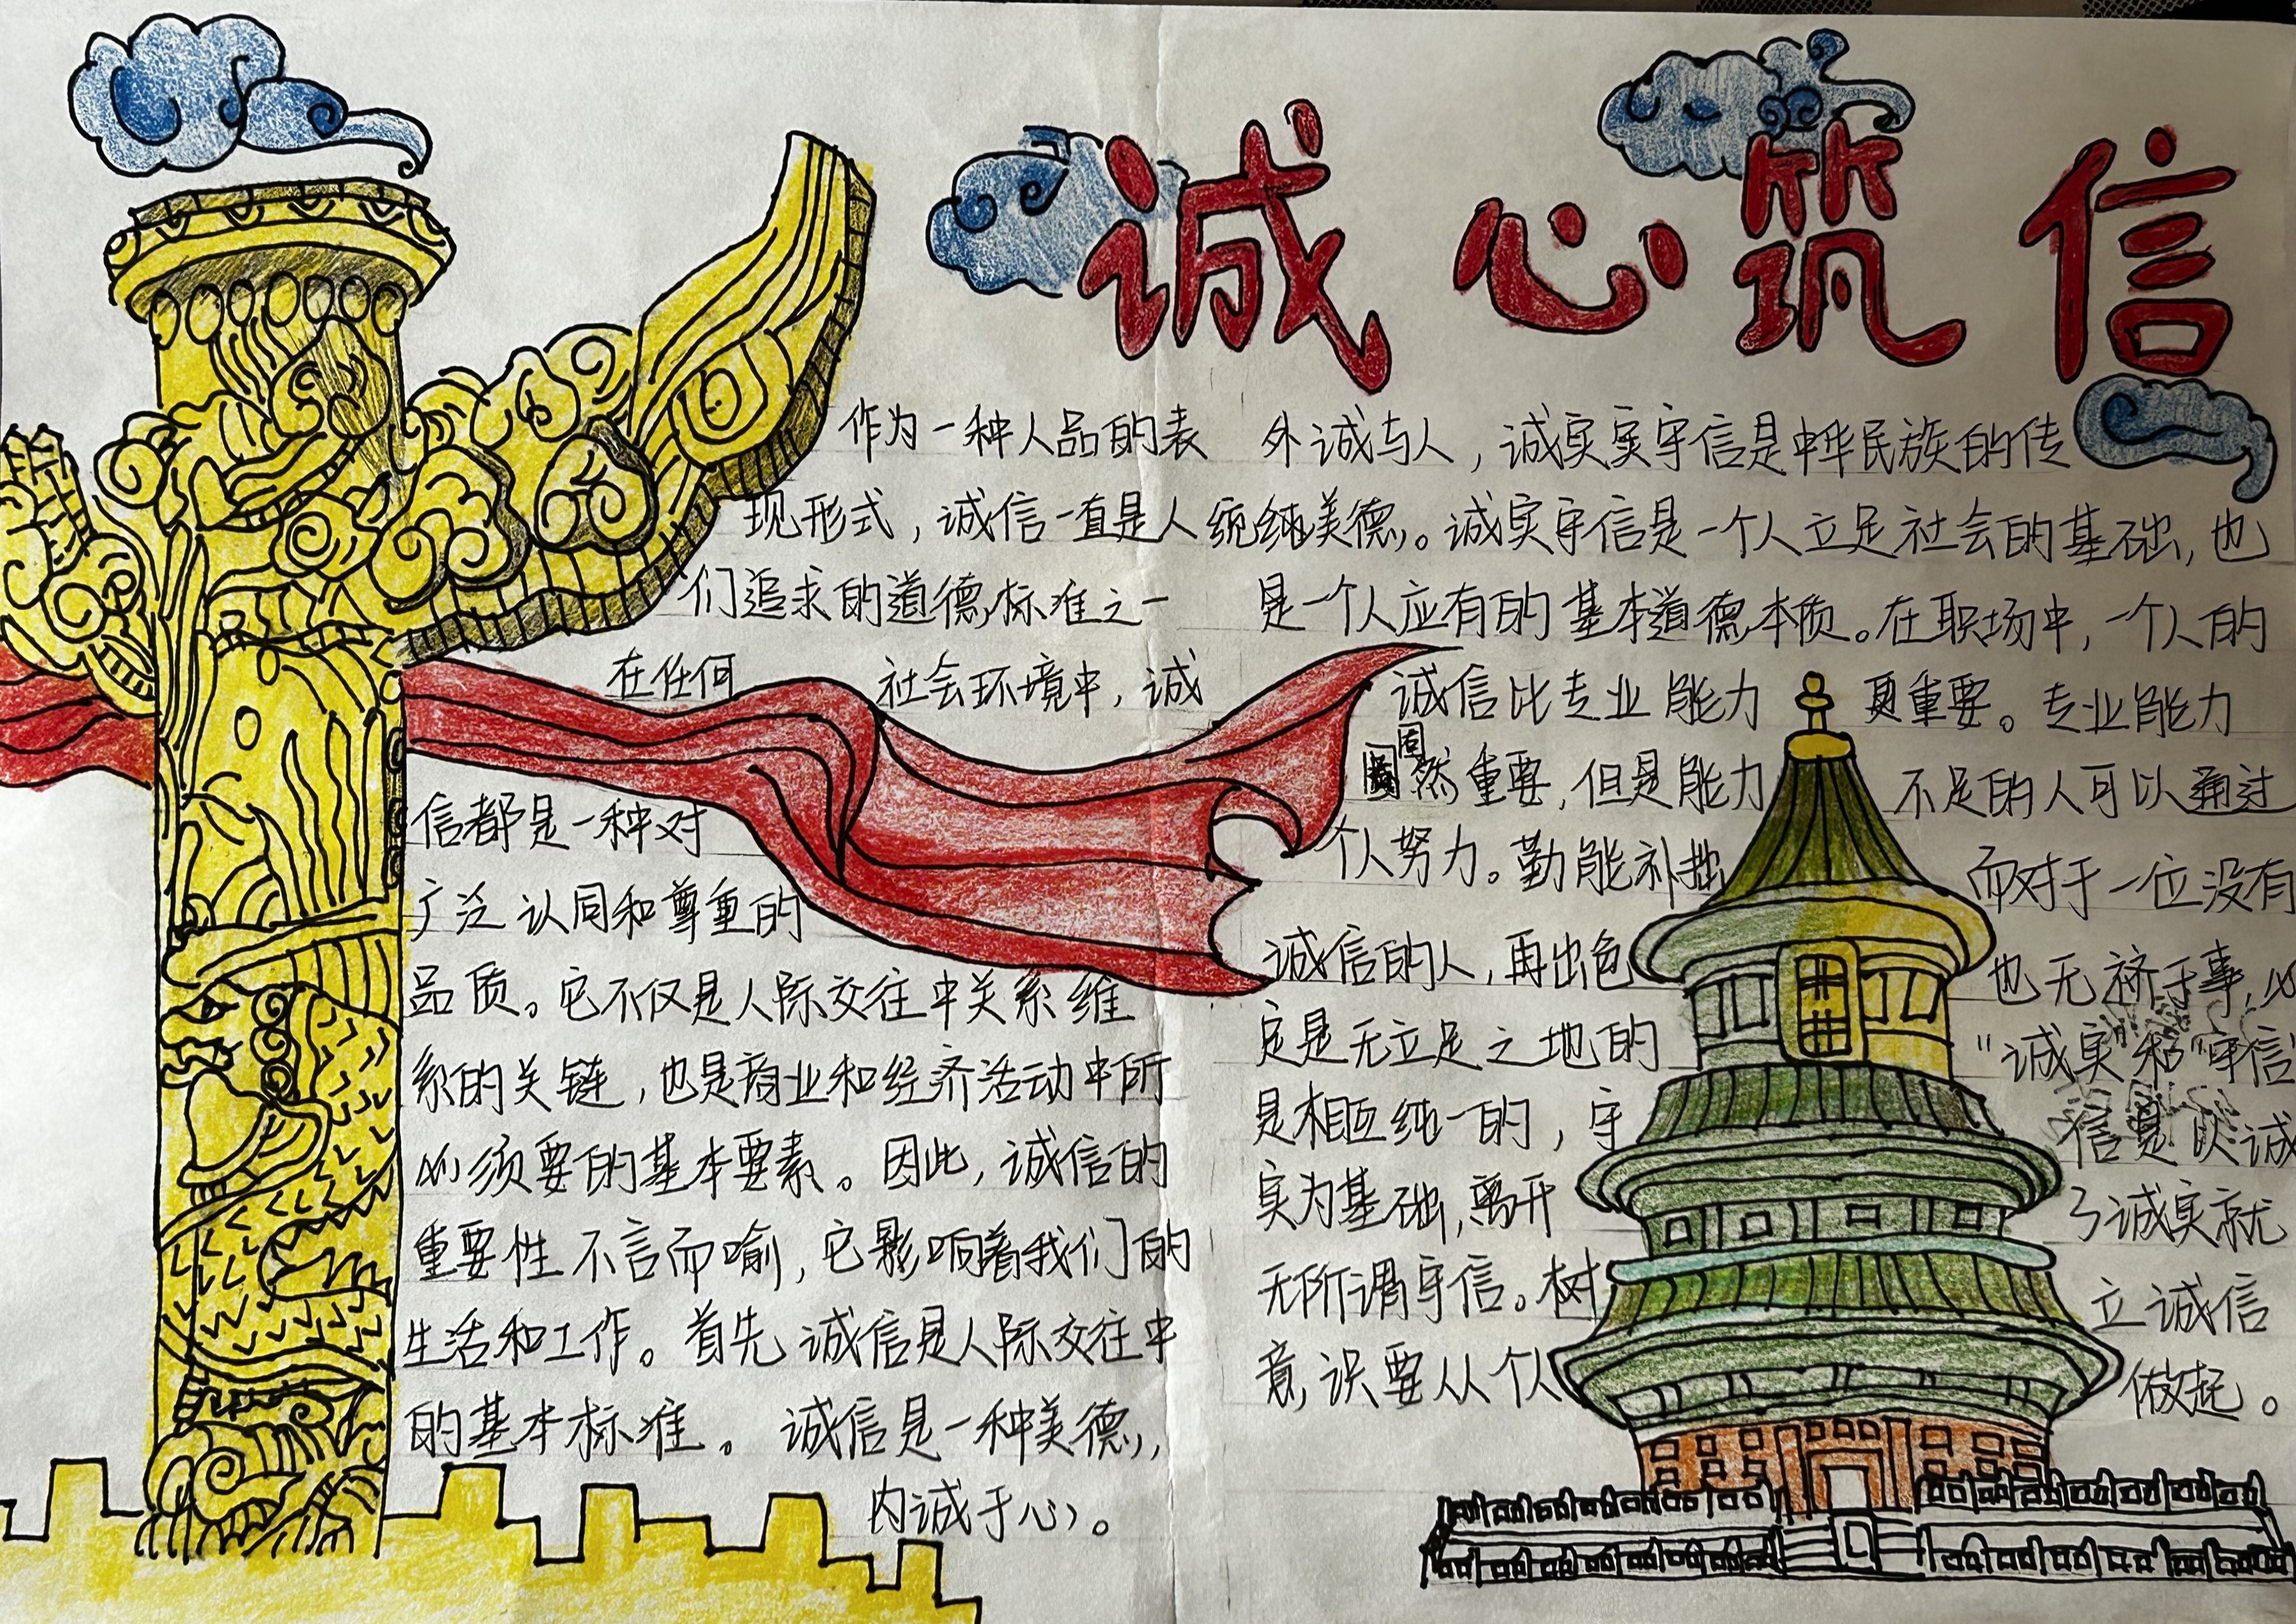 诚心筑信
作为一种人品的表
现形式，诚信一直是人
们追求的道德标准之一
在任何社会环境中，诚
信都是一种对
广泛认同和尊重的
品质。它不仅是人际交往中关系维
系的关链，也是商业和经济活动中所
必须要的基本要素。因此，诚信的
重要性不言而喻，它影响着我们的
生活和工作。首先诚信是人际交往中
的基本标准。诚信是一种美德，
内诚于心。
外诚与人，诚实实守信是中华民族的传
统纯美德。诚实守信是一个人立足社会的基础，也
是一个人应有的基本道德本质。在职场中，一个人的
诚信比专业能力更重要。专业能力
固然重要，但是能力不足的人可以通过
个人努力。勤能补拙而对于一位没有
诚信的人，再出色也无济于事，必
定是无立足之地的"诚实"和"守信"
是相互统一的，守信是以诚
实为基础，离开了诚实就
无所谓守信。树立诚信
意识要从个人做起。